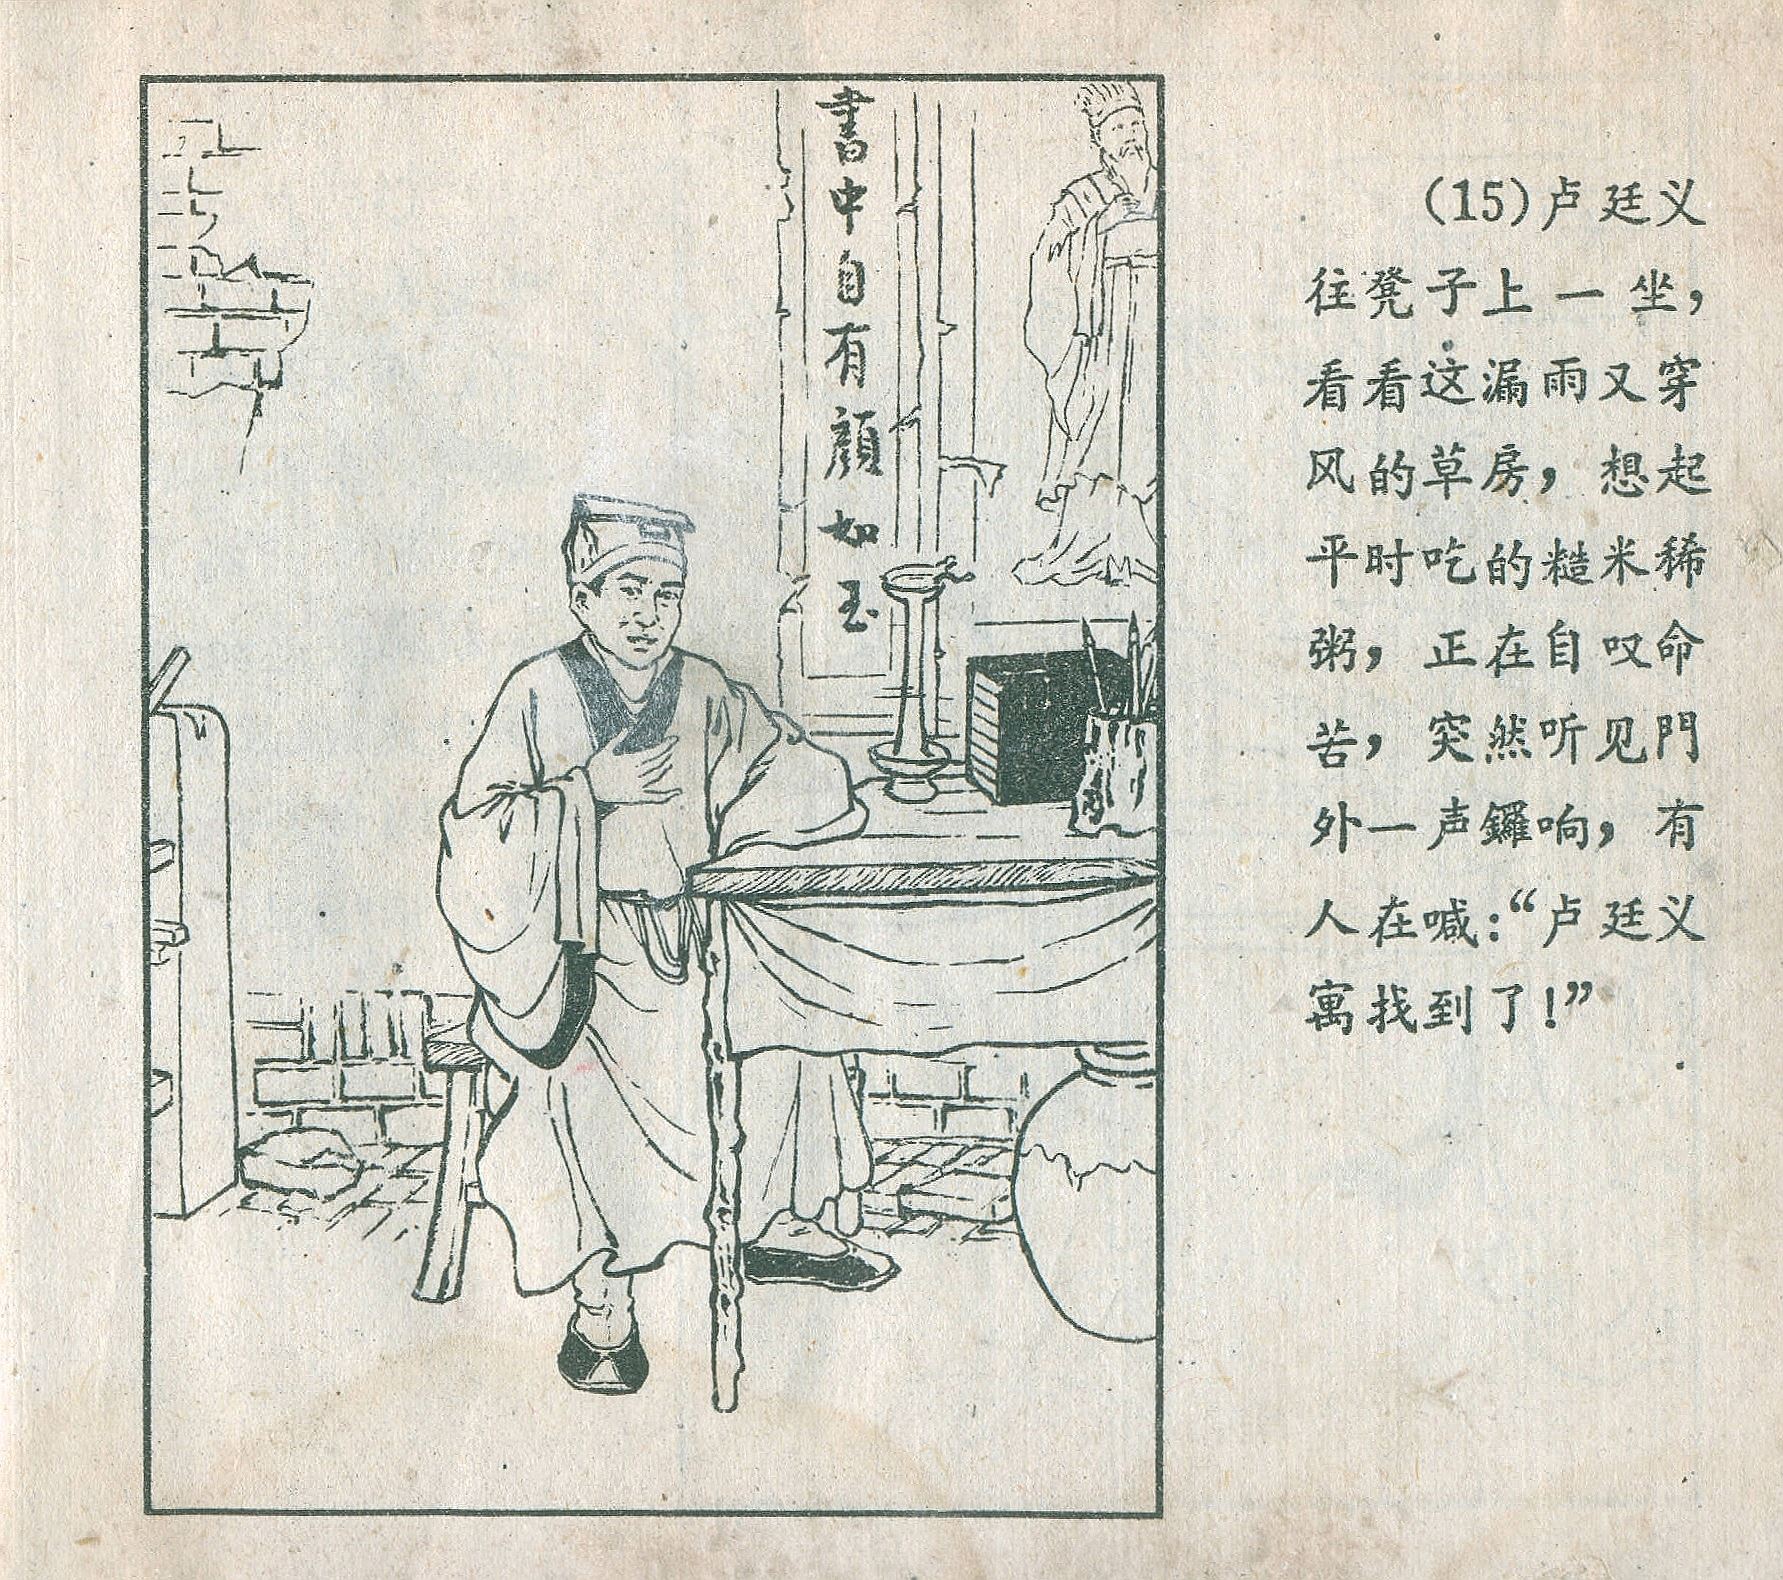 書中自有顏如玉
(15)卢廷义
往凳子上一坐，
看看这漏雨又穿
风的草房，想起
平时吃的糙米稀
粥，正在自叹命
苦，突然听见門
外一声鑼响，有
人在喊：“卢廷义
寓找到了!”